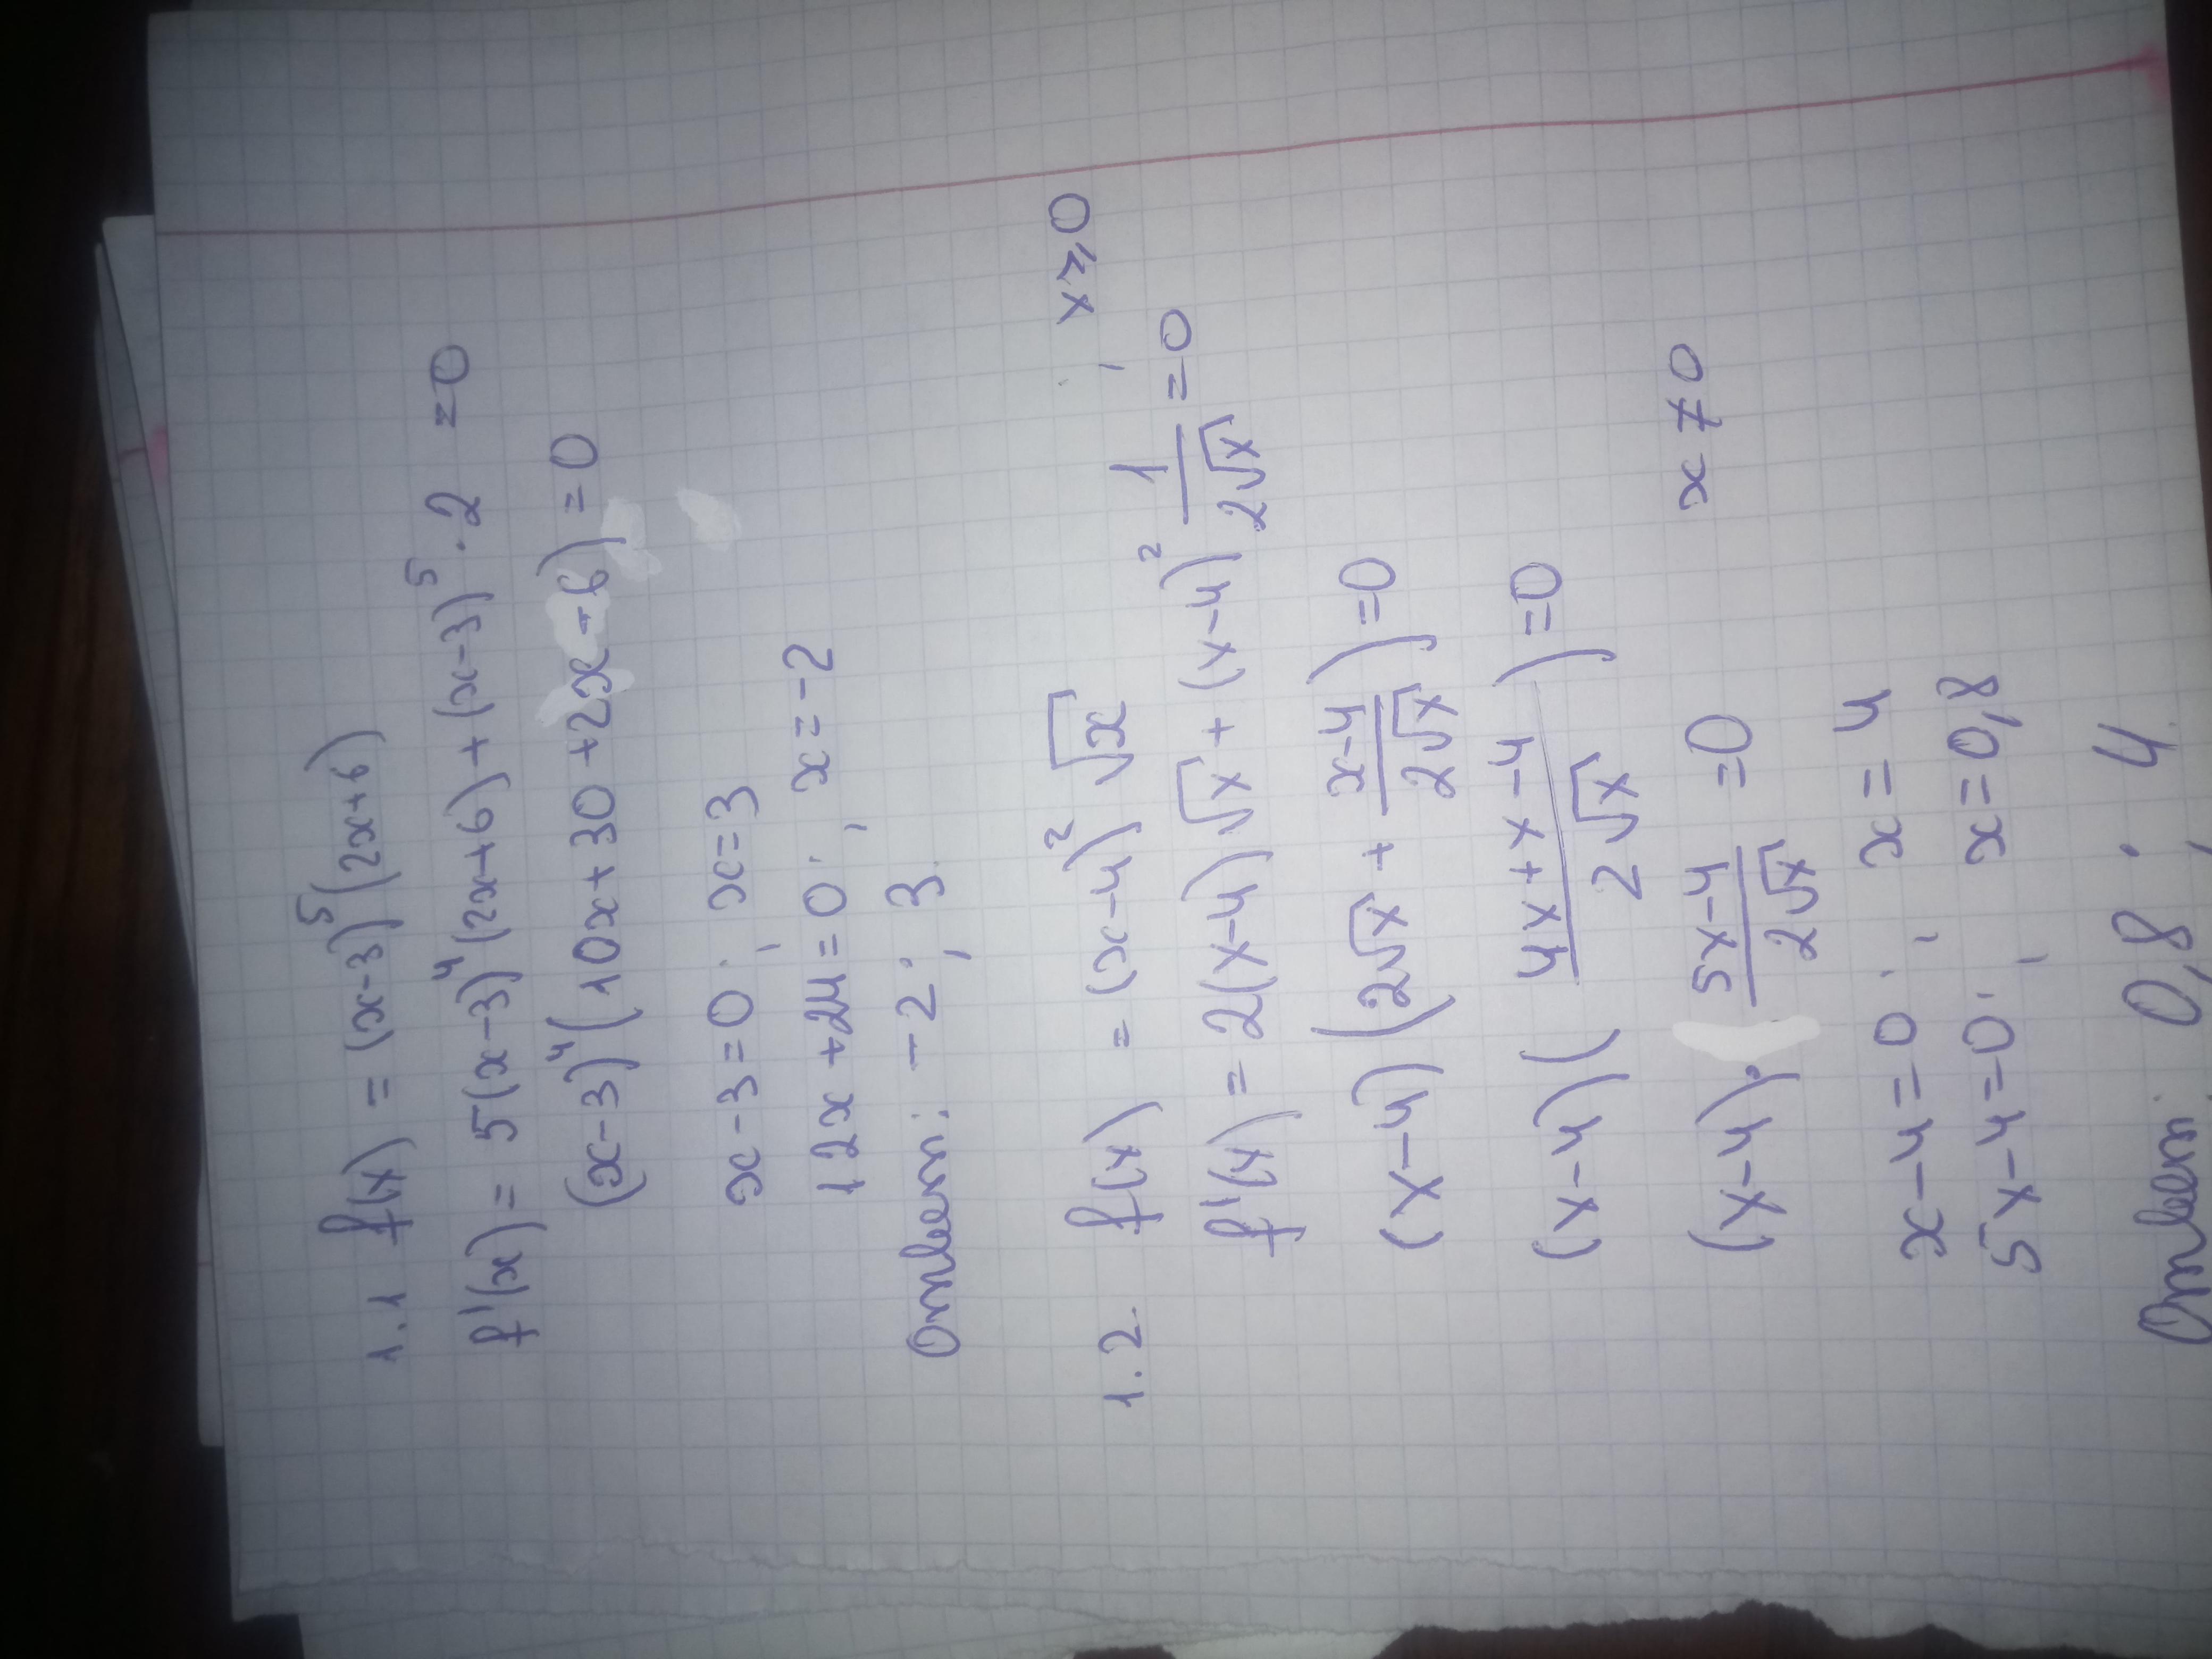 1.1 f(x) = (x-3)⁵(2x+6)
f'(x) = 5(x-3)⁴(2x+6)+(x-3)⁵·2 =0
(x-3)⁴(10x+30+2x-6)=0
x-3=0; x=3
12x+24=0; x=-2
Ответ: -2; 3.
1.2. f(x) = (x-4)²√x ; x≥0
f'(x) = 2(x-4)√x+(x-4)² 1/(2√x) =0
(x-4)(2√x + (x-4)/(2√x))=0
(x-4)((4x+x-4)/(2√x))=0
(x-4)·(5x-4)/(2√x) =0 x≠0
x-4=0; x=4
5x-4=0; x=0,8
Ответ: 0,8; 4.